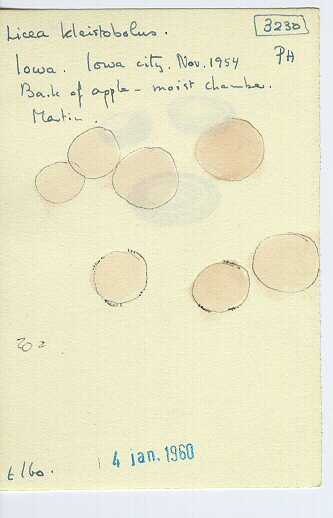 Licea kleistobolus.
3230
Iowa. Iowa city. Nov. 1954
PH
Bark of apple - moist chamber.
Martin.
4 jan. 1960